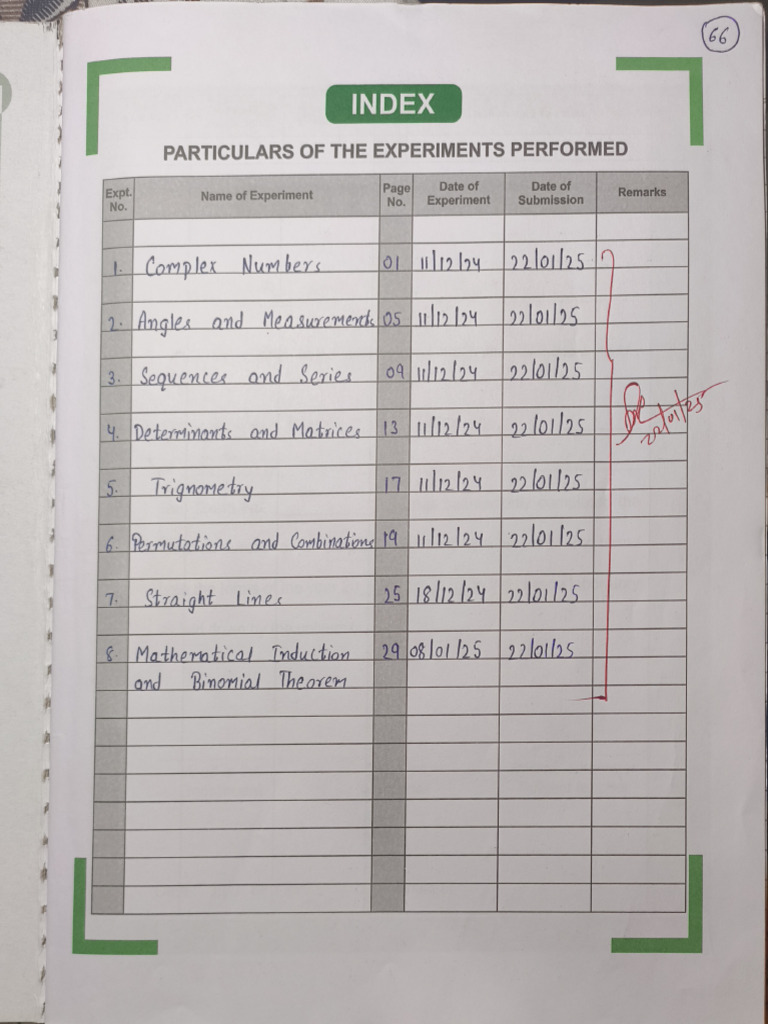 66
INDEX
PARTICULARS OF THE EXPERIMENTS PERFORMED
Expt. No. Name of Experiment Page No. Date of Experiment Date of Submission Remarks
1. Complex Numbers 01 11/12/24 22/01/25
2. Angles and Measurements 05 11/12/24 22/01/25
3. Sequences and Series 09 11/12/24 22/01/25
4. Determinants and Matrices 13 11/12/24 22/01/25
22/01/25
5. Trignometry 17 11/12/24 22/01/25
6. Permutations and Combinations 19 11/12/24 22/01/25
7. Straight Lines 25 18/12/24 22/01/25
8. Mathematical Induction 29 08/01/25 22/01/25
and Binomial Theorem